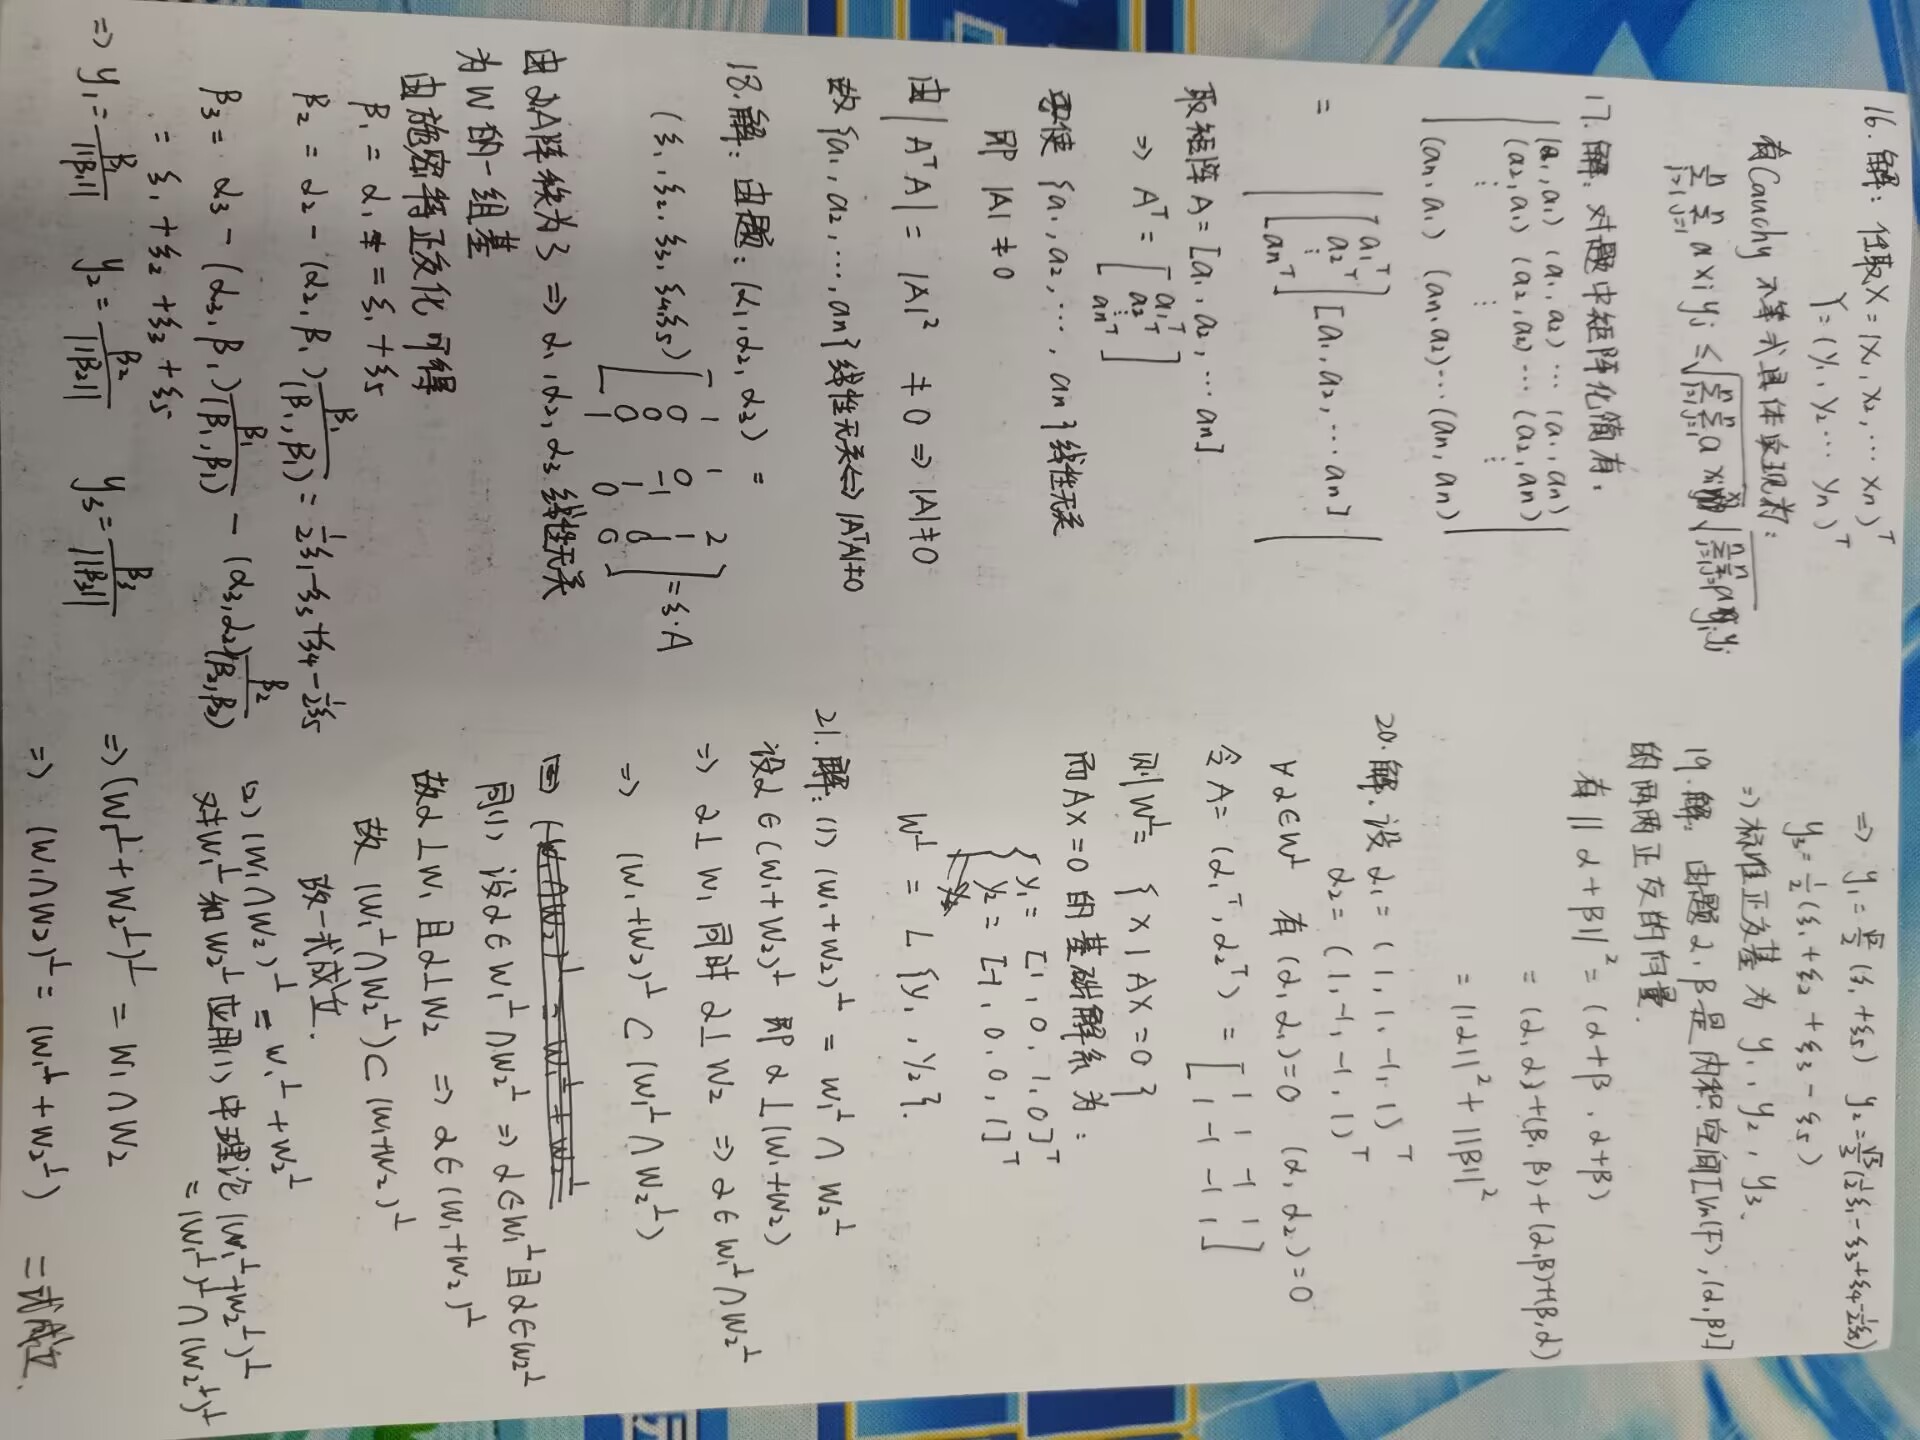 16.解:任取X=(x₁,x₂,…xn)ᵀ
Y=(y₁,y₂…yn)ᵀ
有Cauchy不等式具体实现为:
17.解:对题中矩阵化简有。
|(a₁,a₁) (a₁,a₂) … (a₁,an)|
|(a₂,a₁) (a₂,a₂) … (a₂,an)|
⋮ ⋮ ⋮
|(an,a₁) (an,a₂)…(an,an)|
= | [a₁ᵀ a₂ᵀ ⋮ anᵀ] [a₁,a₂,…an] |
取矩阵A=[a₁,a₂,…an]
⇒ Aᵀ= [a₁ᵀ a₂ᵀ ⋮ anᵀ]
使{a₁,a₂,…,an}线性无关
即 |A|≠0
由|AᵀA|=|A|²≠0⇒|A|≠0
故{a₁,a₂,…,an}线性无关⇔|AᵀA|≠0
18.解:由题:(α₁,α₂,α₃)=
(ξ₁,ξ₂,ξ₃,ξ₄,ξ₅)
[1 1 2
0 0 1
0 -1 1
0 1 0
1 0 0]=ξ·A
由A阵秩为3⇒α₁,α₂,α₃线性无关
为W的一组基
由施密特正交化可得
β₁=α₁=ξ₁+ξ₅
β₂=α₂-(α₂,β₁)β₁/(β₁,β₁)=½ξ₁-ξ₃+ξ₄-½ξ₅
β₃=α₃-(α₃,β₁)β₁/(β₁,β₁)-(α₃,α₂)β₂/(β₂,β₂)
=ξ₁+ξ₂+ξ₃+ξ₅
⇒y₁=β₁/||β₁|| y₂=β₂/||β₂|| y₃=β₃/||β₃||
⇒y₁=√2/2(ξ₁+ξ₅) y₂=
y₃=½(ξ₁+ξ₂+ξ₃-ξ₅)
⇒标准正交基为y₁,y₂,y₃、
19.解:由题α,β是内积空间[Vn(F),(α,β)]
的两两正交的向量.
有||α+β||²=(α+β,α+β)
=(α,α)+(β,β)+(α,β)+(β,α)
=||α||²+||β||²
20.解、设α₁=(1,1,-1,1)ᵀ
α₂=(1,-1,-1,1)ᵀ
∀α∈W⊥ 有(α,α₁)=0 (α,α₂)=0
令A=(α₁ᵀ,α₂ᵀ)=[1 1 -1 1
1 -1 -1 1]
则W⊥={X|AX=0}
而AX=0的基础解系为:
{y₁=[1,0,1,0]ᵀ
y₂=[-1,0,0,1]ᵀ
W⊥=L{y₁,y₂}.
21.解:(1)(W₁+W₂)⊥=W₁⊥∩W₂⊥
设α∈(W₁+W₂)⊥ 即α⊥(W₁+W₂)
⇒α⊥W₁同时α⊥W₂⇒α∈W₁⊥∩W₂⊥
⇒(W₁+W₂)⊥⊂(W₁⊥∩W₂⊥)
同(1)设α∈W₁⊥∩W₂⊥⇒α∈W₁⊥且α∈W₂⊥
故α⊥W₁且α⊥W₂⇒α∈(W₁+W₂)⊥
故(W₁⊥∩W₂⊥)⊂(W₁+W₂)⊥
故一式成立.
(2)(W₁∩W₂)⊥=W₁⊥+W₂⊥
对W₁⊥和W₂⊥应用(1)中理论(W₁⊥+W₂⊥)⊥
=(W₁⊥)⊥∩(W₂⊥)⊥
⇒(W₁⊥+W₂⊥)⊥=W₁∩W₂
⇒(W₁∩W₂)⊥=(W₁⊥+W₂⊥) 二式成立.